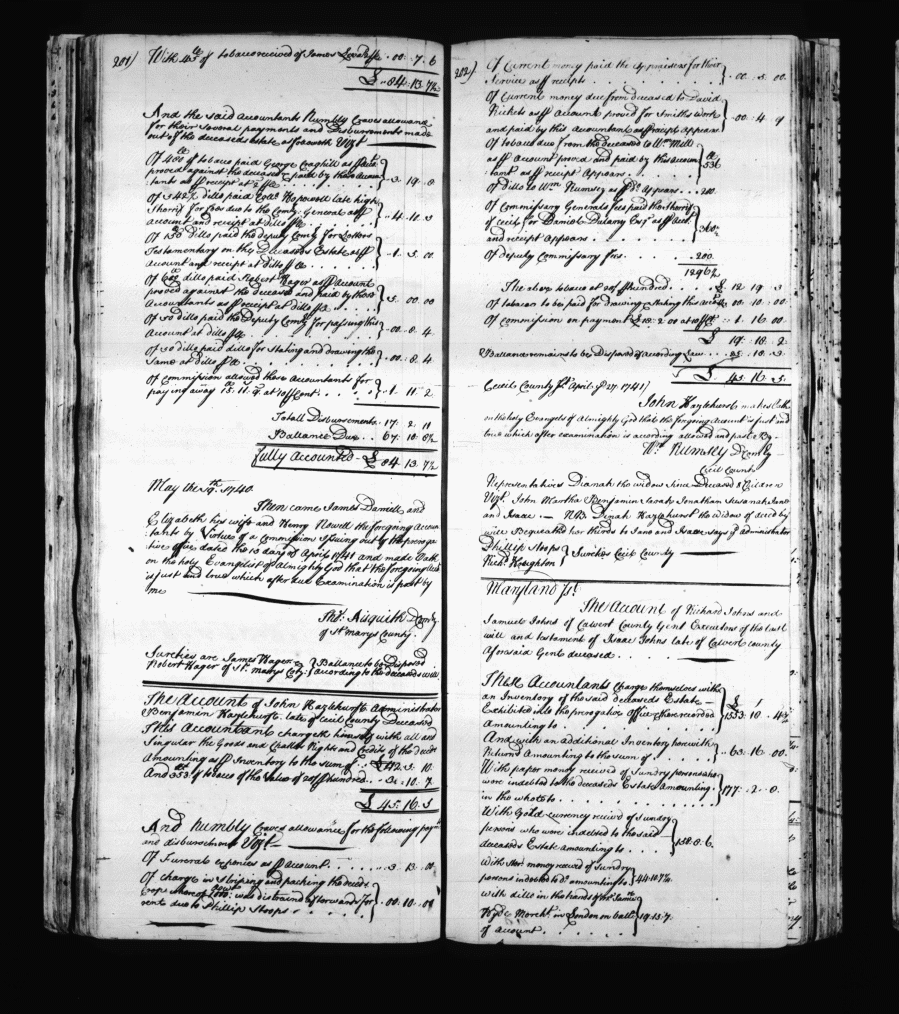 201)
With 45 lb of tobacco received of James . 00 . 7 . 6
£ . 84 . 13 . 7½
And the said Accountants Humbly Craves allowance
for their Several payments and Disbursements made
out of the deceaseds Estate as followeth Vizt
Of 400 lb of tobacco paid George Craghill as # Acco
proved against the deceased & paid by these Accoun
tants as # receipt at 2 # lb . . . 3 . 19 . 8
Of 3427 ditto paid Collo Hopewell late high
Sherriff for fees due to the Comry General as #
account and receipt at ditto # lb . . 4 . 10 . 3
Of 150 ditto paid the deputy Comry for Letters
Testamentary on the Deceaseds Estate as #
account and receipt at ditto # lb . . . 1 . 5 . 00
Of 600 ditto paid Robert Hager as # account
proved against the deceased and paid by these
Accountants as # receipt at ditto # lb . . 5 . 00 . 00
Of 50 ditto paid the Deputy Comry for passing this
Account at ditto # lb . . . 00 . 8 . 4
Of 50 ditto paid ditto for Stating and drawing the
Same at ditto # lb . . . 00 . 8 . 4
Of commission allowed these Accountants for
paying away 15 . 11 . 9 at 10 # Cent . . . 1 . 11 . 2
Totall Disbursements . 17 . 2 . 11
Ballance Due . . 67 . 10 . 8½
Fully Accounted - £ 84 . 13 . 7½
May the 9th 1740
Then came James Daniell and
Elizabeth his wife and Henry Nowell the foregoing Accoun
tants by Virtue of a Commission Issuing out of the preroga
tive office dated the 10 day of April 1741 and made Oath
on the holy Evangelist of almighty God that the foregoing Acco
is just and true which after due Examination is past by
me
Thos Aisquith D Comry
of St Marys County
Sureties are James Hager
Robert Hager of St marys Coty } Ballance to be Disposed
according to the deceaseds will
The Account of John Hazlehurst Administrator
Benjamin Hazlehurst late of Cecil County Deceased
This Accountant chargeth himself with all and
Singular the Goods and Chattles Rights and Credits of the deced
Amounting as # Inventory to the Sum of . . £ 42 . 5 . 10
And 353 lb of tobacco of the Value of 20 # hundred . . 3 . 10 . 7
£ 45 . 16 . 5
And humbly Craves allowance for the following paymts
and disbursements Vizt
Of Funeral expences as # account . . . . 3 . 13 . 00
Of charge in Striping and packing the deceds
Crop whereof was distraind afterwards for
rents due to Phillip Stoops . . . 00 . 10 . 00
202)
Of Current money paid the Appraisers for their
Service as # receipts . . . 00 . 5 . 00
Of Current money due from deceased to David
Rickets as # Account proved for Smiths work
and paid by this Accountant as # receipt Appears . 00 . 4 . 9
Of tobacco due from the deceased to Wm Mill
as # Account proved and paid by this accoun
tant as # receipt Appears . . . lb 536
Of ditto to Wm Rumsey as # Do Appears . . 200
Of Commissary Generals fees paid the Sherriff
of Cecil for Daniel Dulany Esqr as # Acct
and receipt Appears . . . 360½
Of deputy Commissary fees . . . 200
1296½
The above tobacco at 20 # hundred . . £ 12 19 . 3
Of tobacco to be paid for drawing & stating this Acco 00 . 10 . 00
Of commission on payment £ 18 . 2 . 00 at 10 # Ct . . 1 . 16 00
£ 19 . 18 . 2
Ballance remains to be Disposed of according Law . . 25 . 18 . 3
£ 45 . 16 . 5
Cecil County Ss April # 27 . 1741)
John Hazlehurst makes Oath
on the holy Evangels of Almighty God that the foregoing Account is just and
true which after examination is according allowed and past # By -
Wm Rumsey D Comry
Cecil County
Representatives Dianah the widow Since Deceased 8 Children
Vizt John Martha Benjamin Sarah Jonathan Susanah Jane
and Isaac . — NB Dinah Hazlehurst the Widow of deced by
since Bequeathd her thirds to Jane and Isaac says ye administrator
Phillip Stoops
Richd Houghton } Sureties Cecil County
Maryland Ss
The Account of Richard Johns and
Samuel Johns of Calvert County Gent Executors of the last
will and testament of Isaac Johns late of Calvert County
Aforesaid Gent deceased .
These Accountants Charge themselves with
an Inventory of the said deceaseds Estate
Exhibited into the prerogative Office & there recorded
Amounting to . . . £ 1553 . 10 . 4½
And with an additional Inventory herewith
Returnd Amounting to the Sum of . . . 63 . 16 . 00
With paper money received of Sundry persons who
were indebted to the deceaseds Estate amounting
in the whole to . . . 177 . 2 . 0
With Gold currency receivd of Sundry
persons who were indebted to the said
deceaseds Estate amounting to . . . 158 . 8 . 6
With Sterl money receivd of Sundry
persons indebted to Do amounting to 44 . 10 . 7½
with ditto in the hands of Mr Saml
Hyde Mercht in London on ballce
of account . . . 19 . 15 . 7